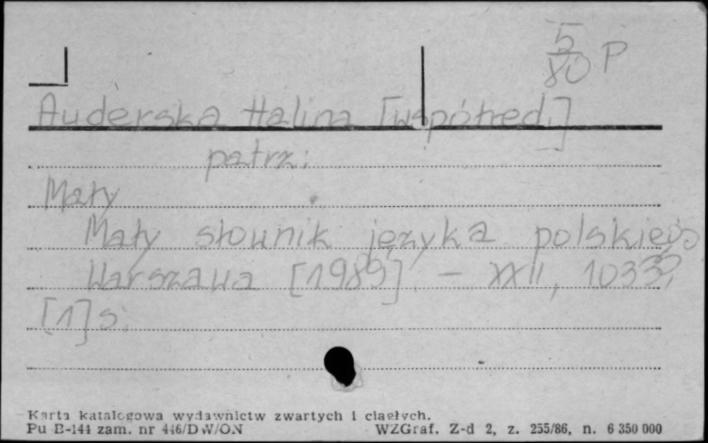 5/80 P
Auderska Halina [współred.]
patrz:
Mały
Mały słownik języka polskiego
Warszawa [1989]. - XXII, 1033,
[1] s.
Karta katalogowa wydawnictw zwartych i ciągłych.
Pu B-144 zam. nr 446/DW/ON WZGraf. Z-d 2, z. 255/86, n. 6 350 000